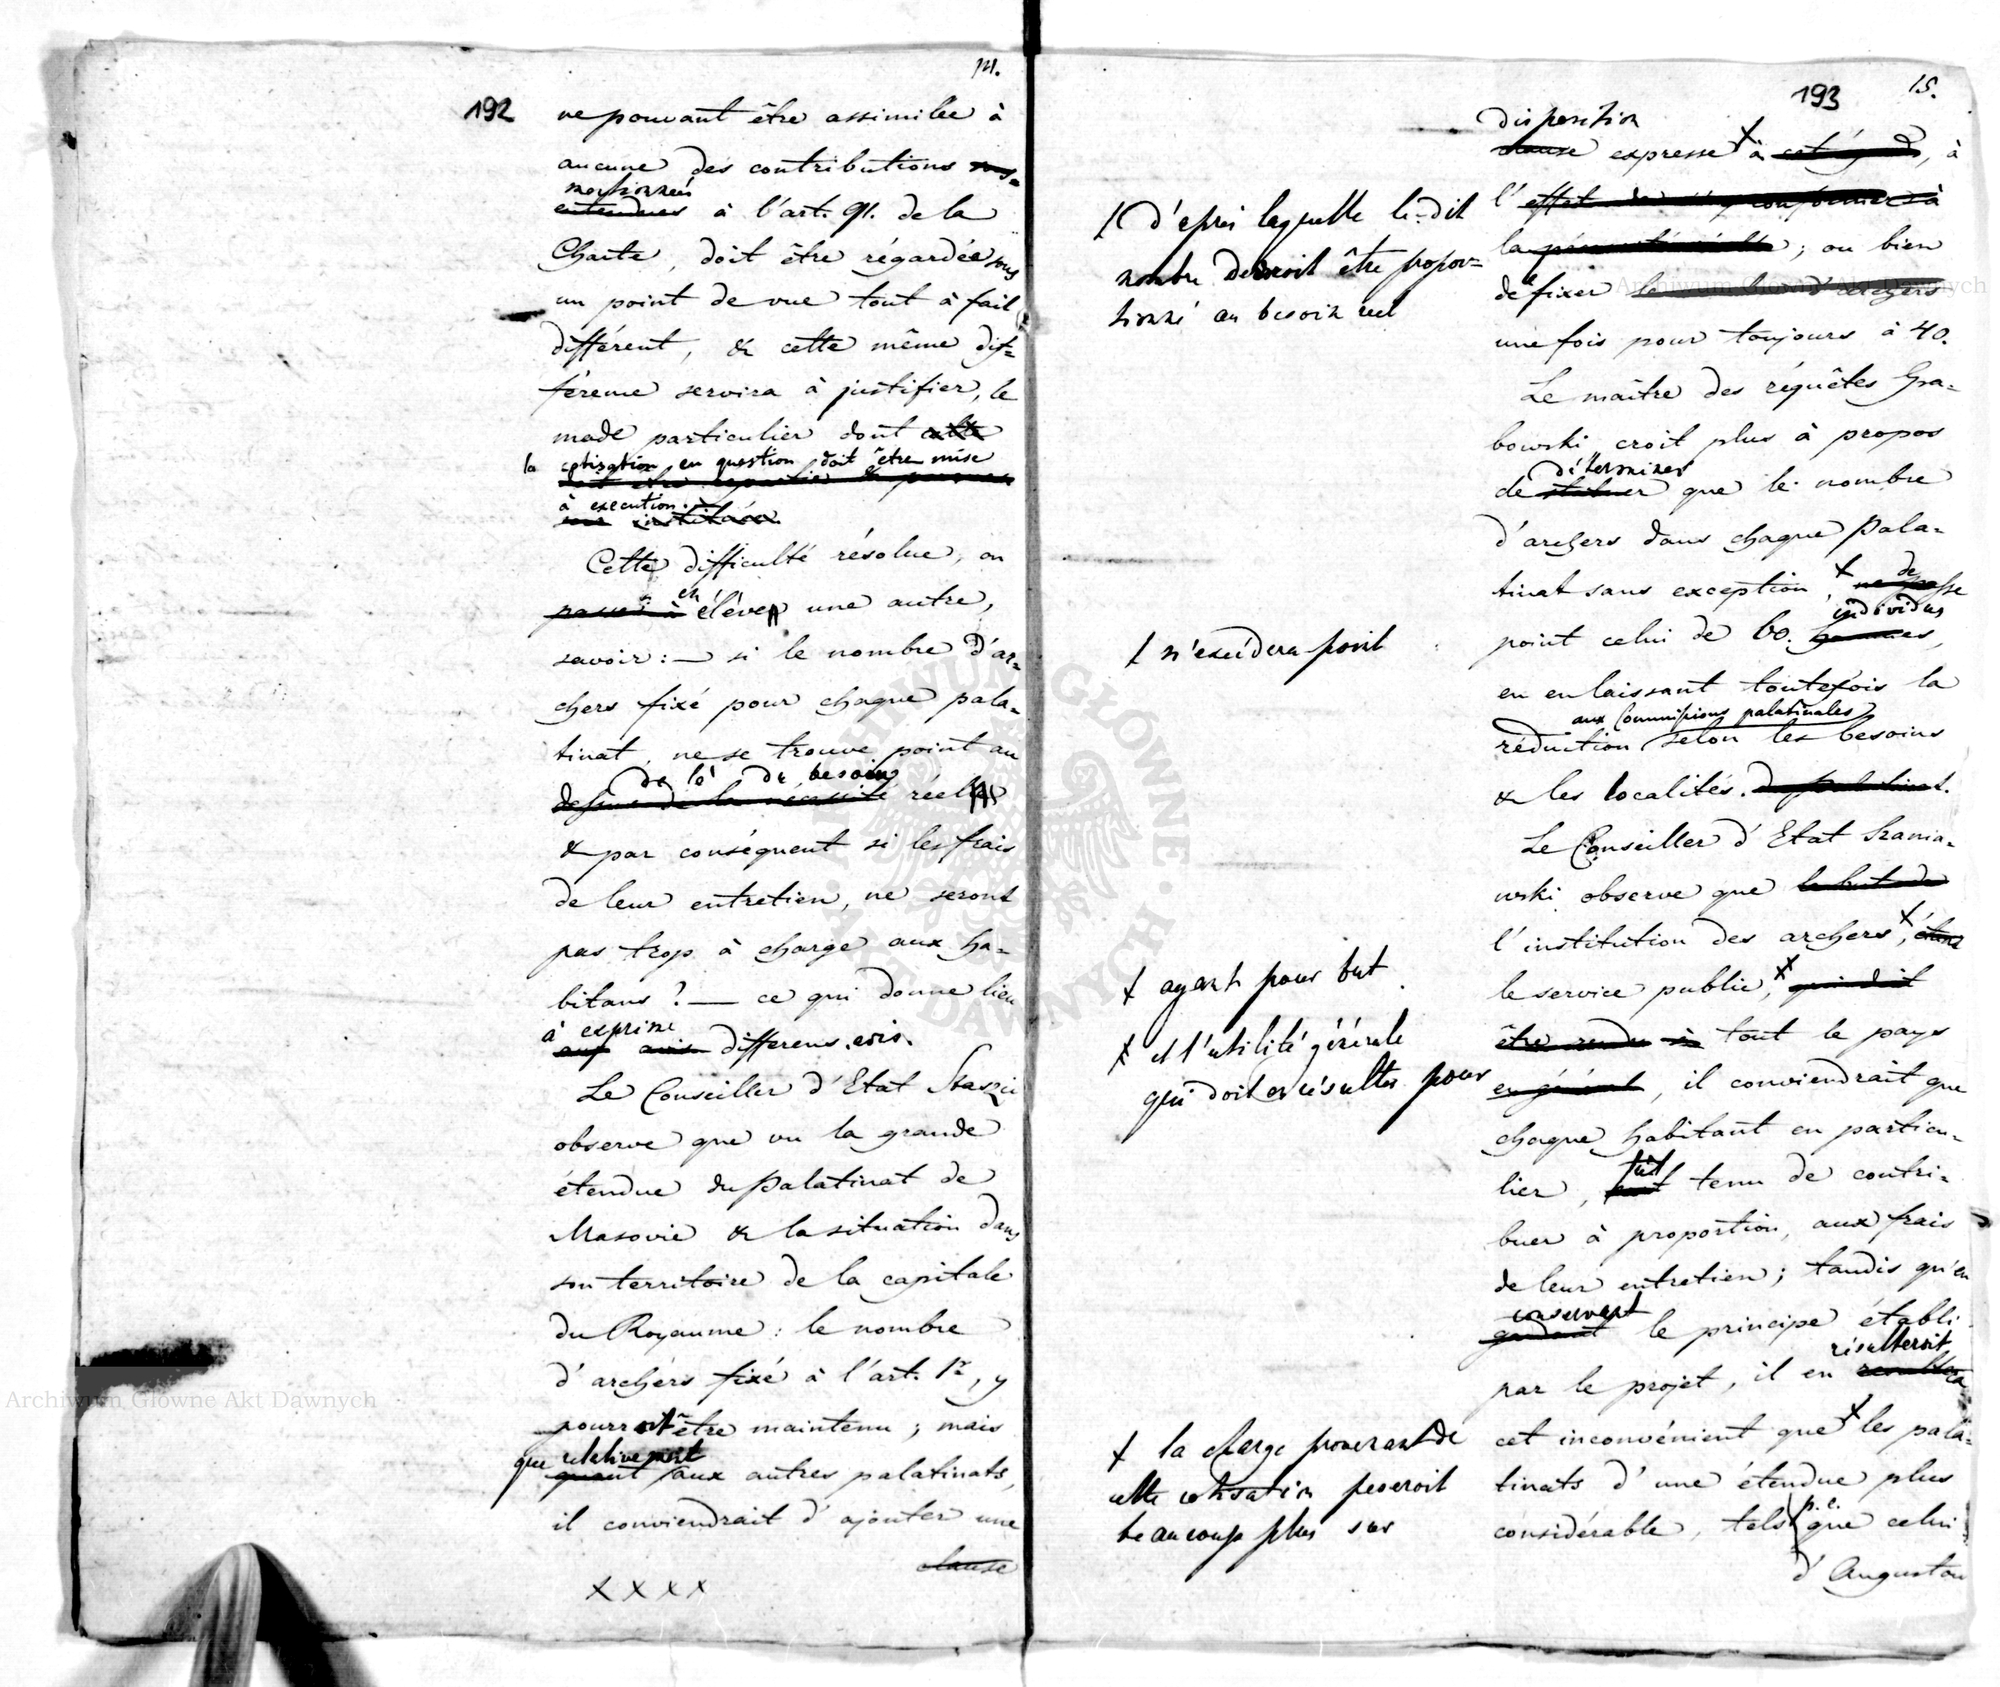 14.
192
ne pouvant être assimilée à
aucune des contributions
mentionnées
entendues à l'art. 91. de la
Charte, doit être régardée sous
un point de vue tout à fait
différent, & cette même dif=
férence servira à justifier, le
mode particulier dont cette
la cotisation en question doit être mise
à execution.
Cette difficulté résolue, on
passe à en élève une autre,
savoir: — si le nombre d'ar=
chers fixé pour chaque pala=
tinat, ne se trouve point au
de là du besoin
dessus de la nécessité réel
& par conséquent si les frais
de leur entretien, ne seront
pas trop à charge aux ha=
bitans? — ce qui donne lieu
à exprime
aux avis differens avis.
Le Conseiller d'Etat Staszic
observe que vu la grande
étendue du Palatinat de
Masovie & la situation dans
son territoire de la capitale
du Royaume: le nombre
d'archers fixé à l'art. 1r, y
pourroit être maintenu; mais
que relativement
quant aux autres palatinats,
il conviendrait d'ajouter une
clause
x x x x
193
15.
disposition
clause expresse à, à
l'effet de s'y conformer à
la; ou bien
de le fixer le nombre d'archers
une fois pour toujours à 40.
Le maître des réquêtes Gra=
bowski croit plus à propos
déterminer
de statuer que le nombre
d'archers dans chaque Pala=
tinat sans exception, ne dépasse
individus
point celui de 60. hommes,
en en laissant toutefois la
aux Commissions palatinales
réduction selon les besoins
& les localités.
Le Conseiller d'Etat Szania=
wski observe que le but de
l'institution des archers, étant
le service public, qui doit
être rendu à tout le pays
en général, il conviendrait que
chaque habitant en particu=
lier, fût tenu de contri=
buer à proportion, aux frais
de leur entretien; tandis qu'en
conservant
gardant le principe établi
résulteroit
par le projet, il en resultera
cet inconvénient que les pala=
tinats d'une étendue plus
considérable, tels p. e. que celui
d'Augustow
d'après laquelle le-dit
nombre devroit être propor=
tionné au besoin réel
n'excédera point
ayant pour but
et l'utilité générale
qui doit en résulter pour
la charge provenant de
cette cotisation peseroit
beaucoup plus sur
Archiwum Główne Akt Dawnych
Archiwum Główne Akt Dawnych
ARCHIWUM GŁÓWNE · AKT DAWNYCH ·